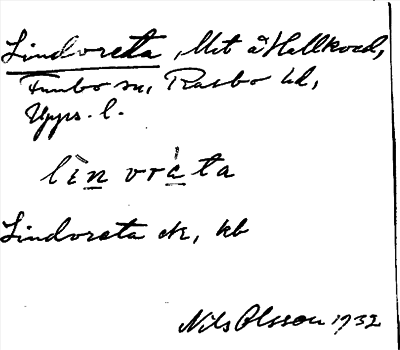 Lindvreta, Mit å Hallkved,
Funbo sn, Rasbo hd,
Upps. l.
lìn vrá ta
Lindvreta ek, kb
Nils Olsson 1932